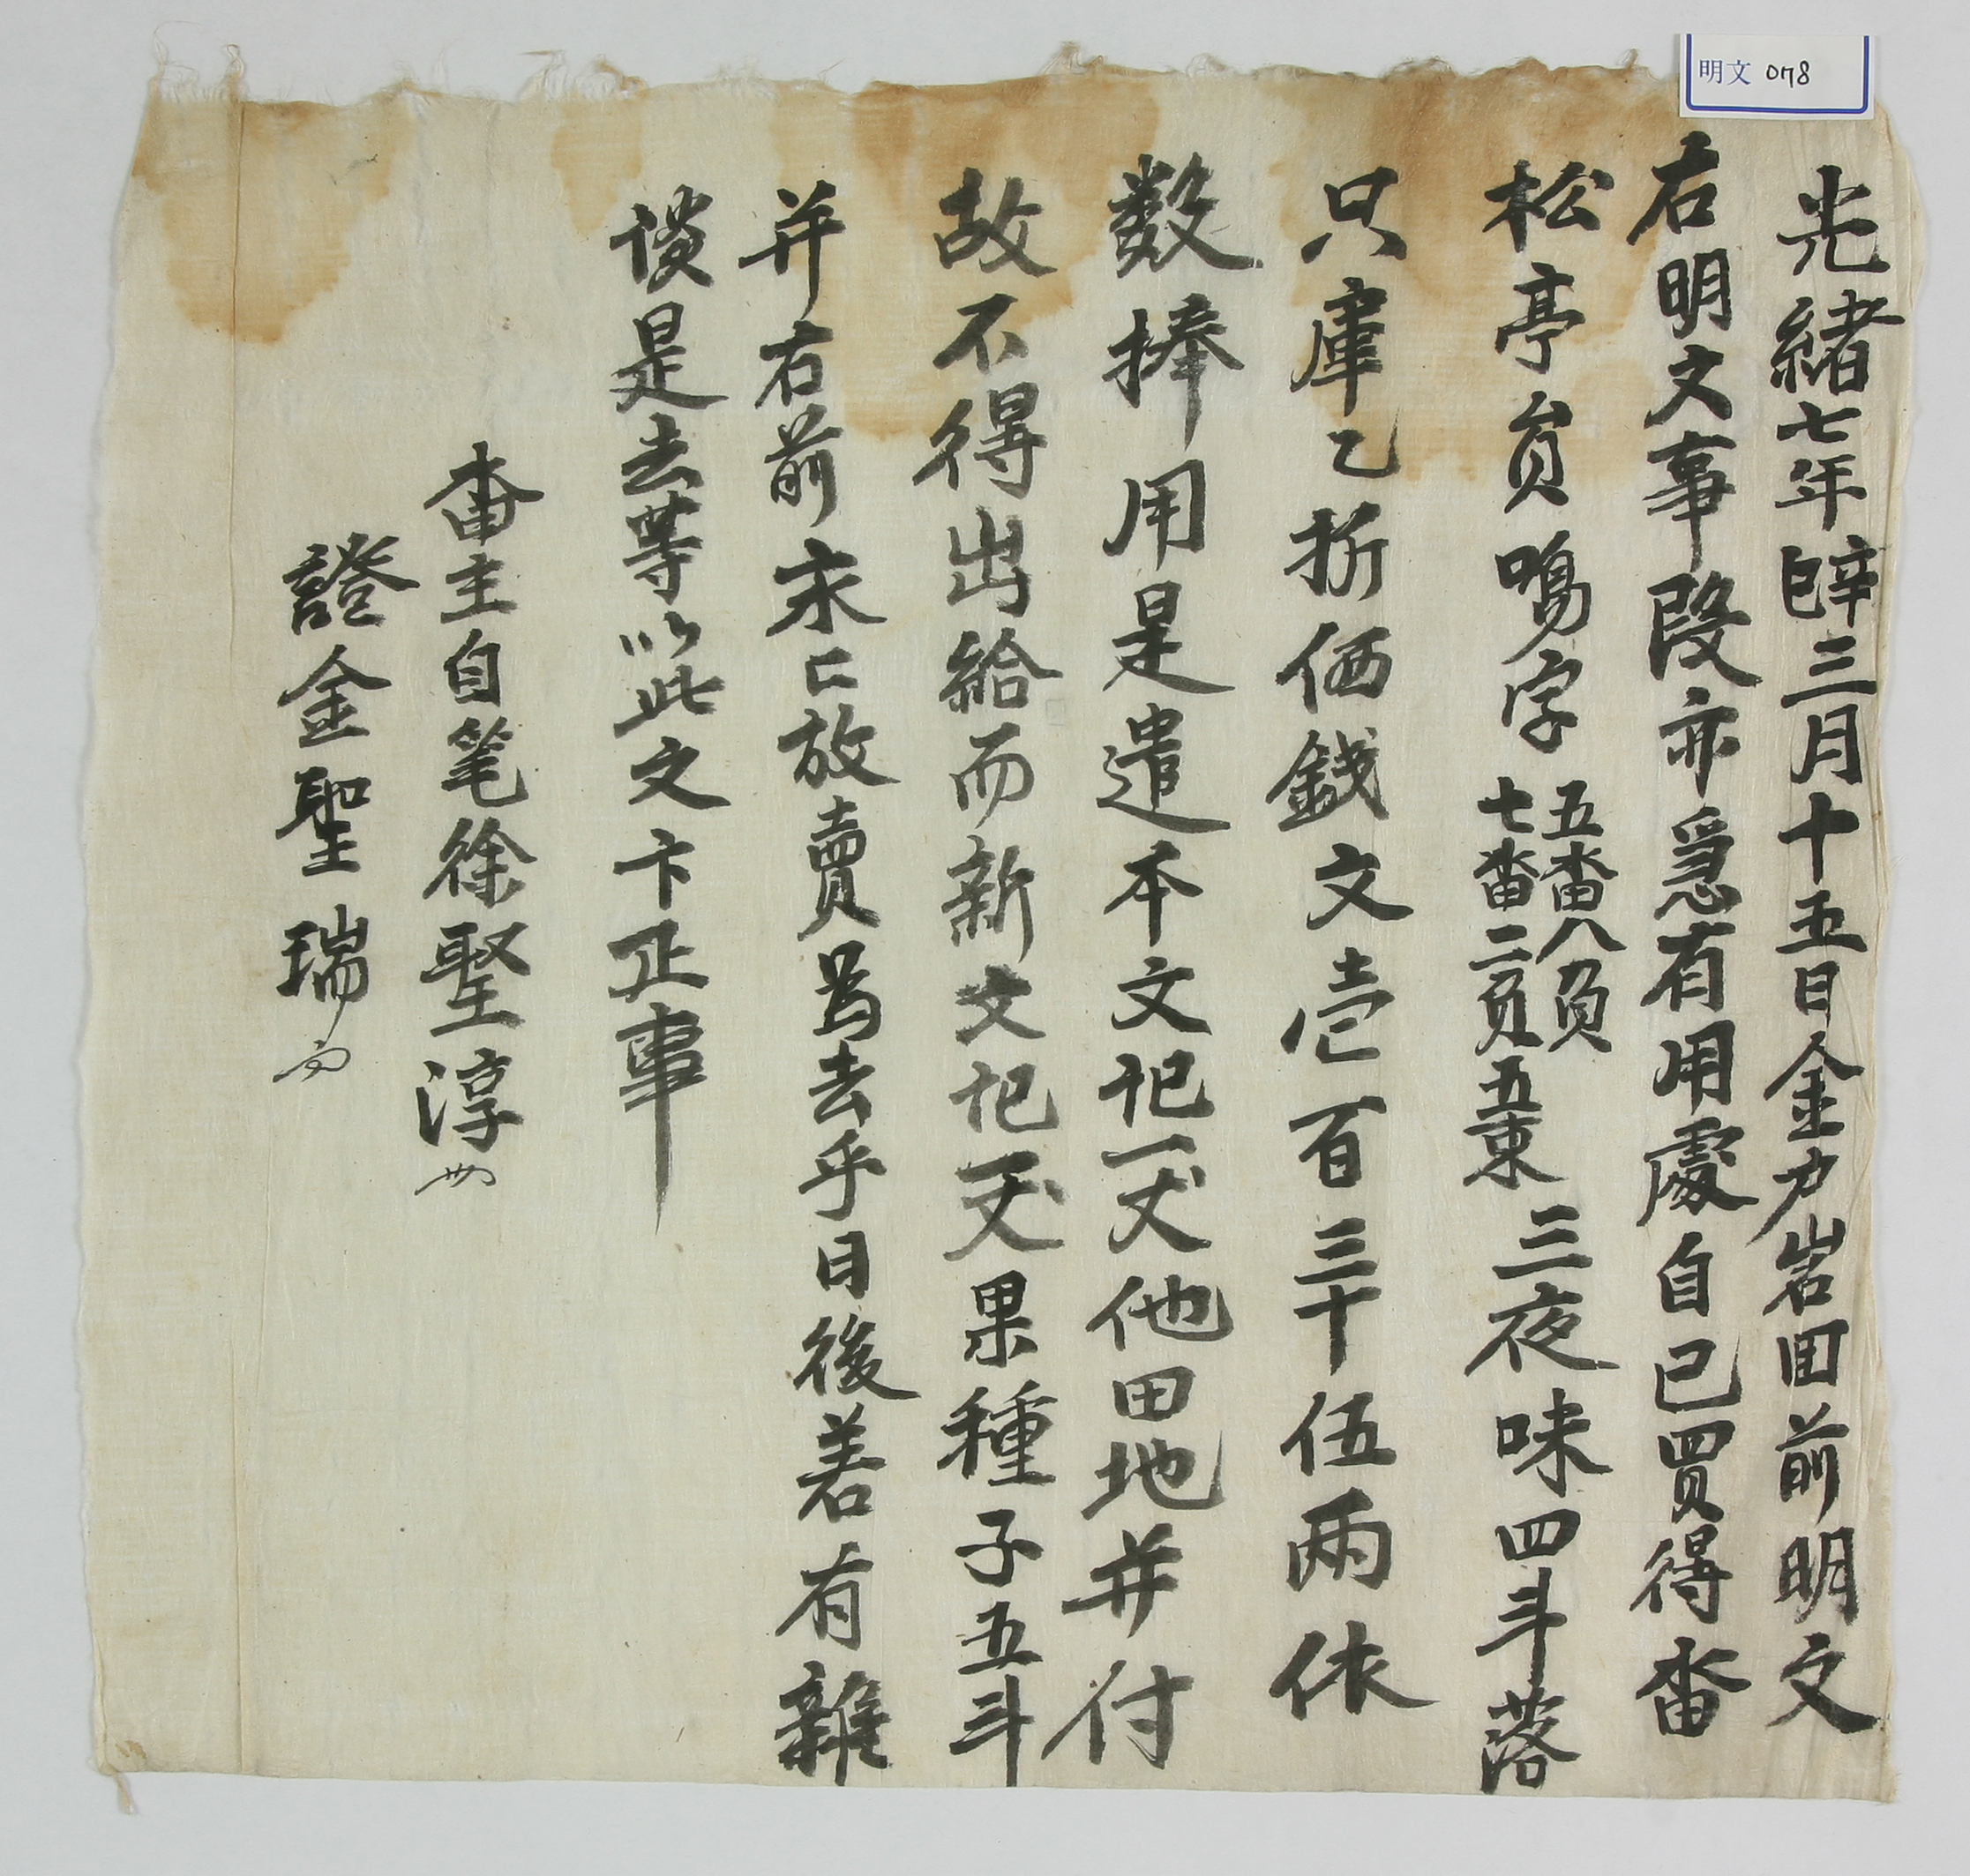 明文 078
光緖七年辛巳三月十五日金力岩回前明文
右明文事段亦急有用處自己買得畓
松亭員鳴字五畓八負七畓二負五束三夜味四斗落
只庫乙折価錢文壱百三十伍兩依
数捧用是遣本文記一丈他田地并付
故不得出給而新文記一丈果種子五斗
并右前永〻放賣爲去乎日後若有雜
談是去等以此文卞正事
畓主自笔徐聖淳
證金聖瑞